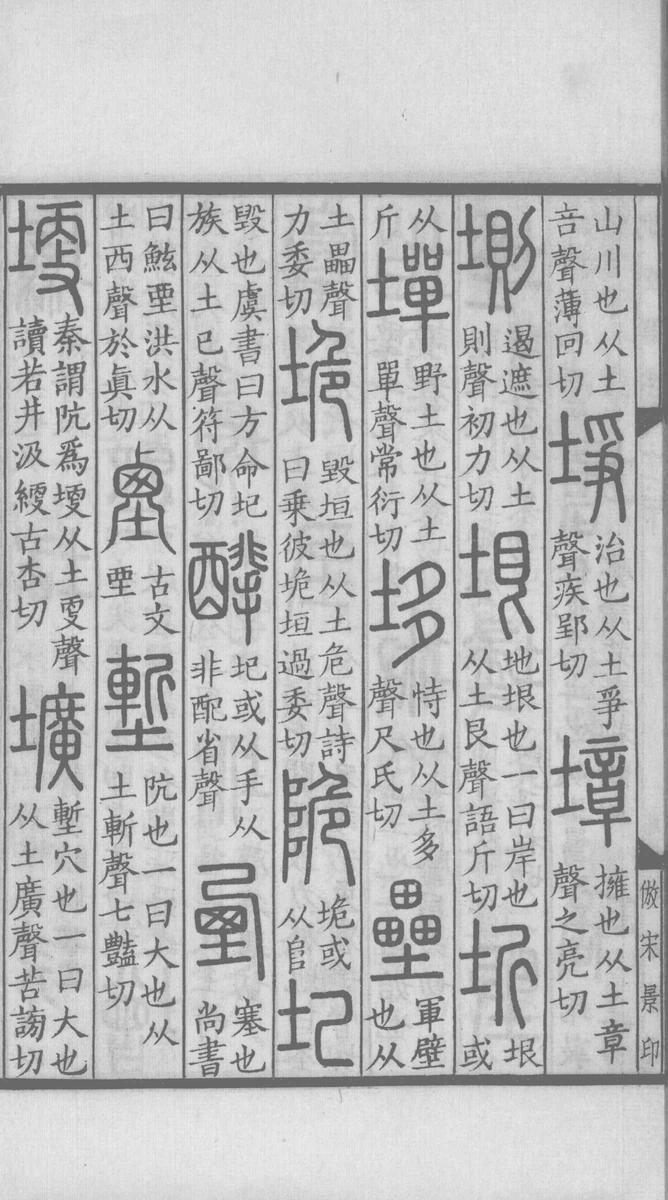 山川也从土
咅聲薄回切
埩
治也从土爭
聲疾郢切
墇
擁也从土章
聲之亮切
𡍫
遏遮也从土
則聲初力切
垠
地垠也一曰岸也
从土艮聲語斤切
圻
垠
或
从
斤
墠
野土也从土
單聲常衍切
垑
恃也从土多
聲尺氏切
壘
軍壁
也从
土畾聲
力委切
垝
毀垣也从土危聲詩
曰乘彼垝垣過委切
陒
垝或
从𨸏
圮
毀也虞書曰方命圮
族从土己聲符鄙切
圮或从手从
非配省聲
垔
塞也
尚書
曰鯀垔洪水从
土西聲於真切
古文
垔
塹
阬也一曰大也从
土斬聲七豔切
埂
秦謂阬爲埂从土更聲
讀若井汲綆古杏切
壙
塹穴也一曰大也
从土廣聲苦謗切
倣宋景印